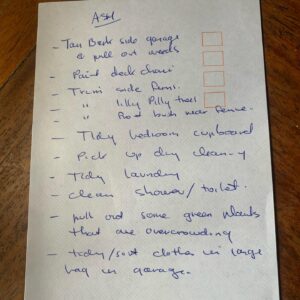 ASH
- Tan Bark side garage
& pull out weeds
- Paint deck chair
- Trim side ferns.
- " lilly Pilly trees
- " Box bush near fence.
- Tidy bedroom cupboard
- Pick up dry clean-y
- Tidy laundry
- clean shower/toilet.
- pull out some green plants
that are overcrowding
- tidy/sort clothes in large
bag in garage.